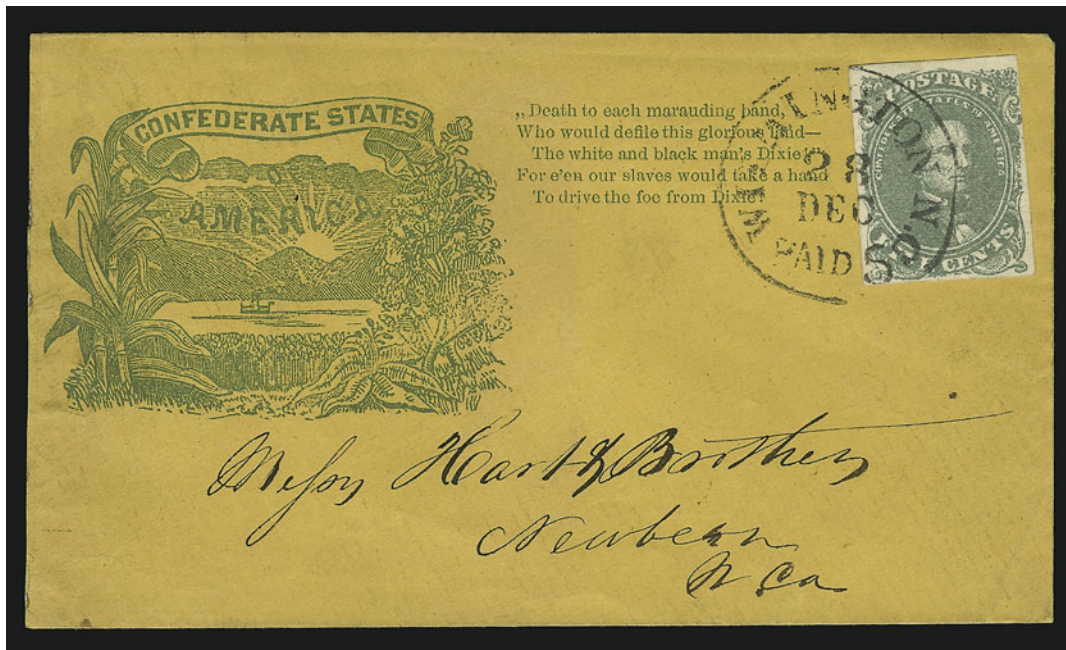 CONFEDERATE STATES
OF
AMERICA
„Death to each marauding band,
Who would defile this glorious land—
The white and black man's Dixie!
For e'en our slaves would take a hand
To drive the foe from Dixie!
WILMINGTON N.C.
28
DEC
PAID
POSTAGE
CONFEDERATE STATES OF AMERICA
CENTS
Messrs Hart & Brothers
Newbern
N Ca